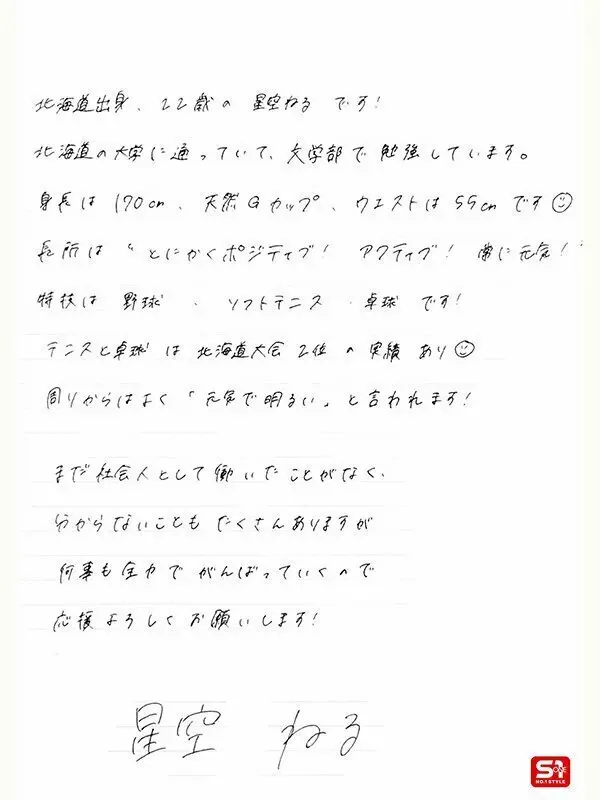 北海道出身、22歳の 星空ねる です!
北海道の大学に通っていて、文学部で勉強しています。
身長は 170cm、天然Gカップ、ウエストは 55cm です☺
長所は "とにかくポジティブ! アクティブ! 常に元気!"
特技は 野球 、ソフトテニス 、卓球 です!
テニスと卓球 は 北海道大会 2位 の 実績 あり☺
周りからはよく「元気で明るい」と言われます!
まだ社会人として働いたことがなく、
分からないことも たくさんありますが
何事も全力で がんばっていくので
応援よろしくお願いします!
星空 ねる
S1
NO.1 STYLE